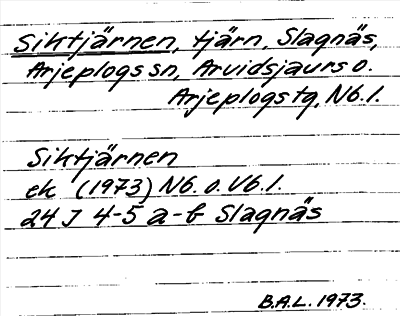 Siktjärnen, tjärn, Slagnäs,
Arjeplogs sn, Arvidsjaurs o.
Arjeplogs tg, Nb. l.
Siktjärnen
ek (1973) Nb. o. Vb. l.
24 J 4-5 a-b Slagnäs
B.A.L. 1973.